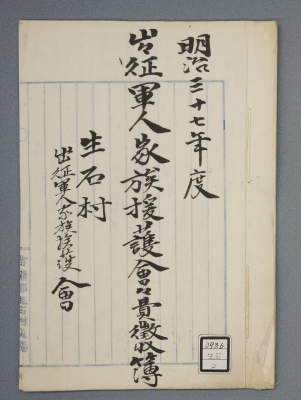 明治三十七年度
出征軍人家族援護會々費徴収簿
生石村
出征軍人家族援護會
0936
2